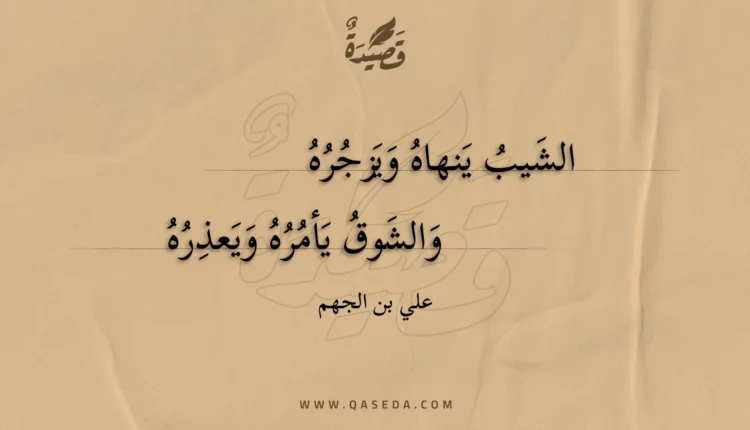 قَصِيدَةٌ
الشَيبُ يَنهاهُ وَيَزجُرُهُ
وَالشَوقُ يَأمُرُهُ وَيَعذِرُهُ
علي بن الجهم
WWW.QASEDA.COM